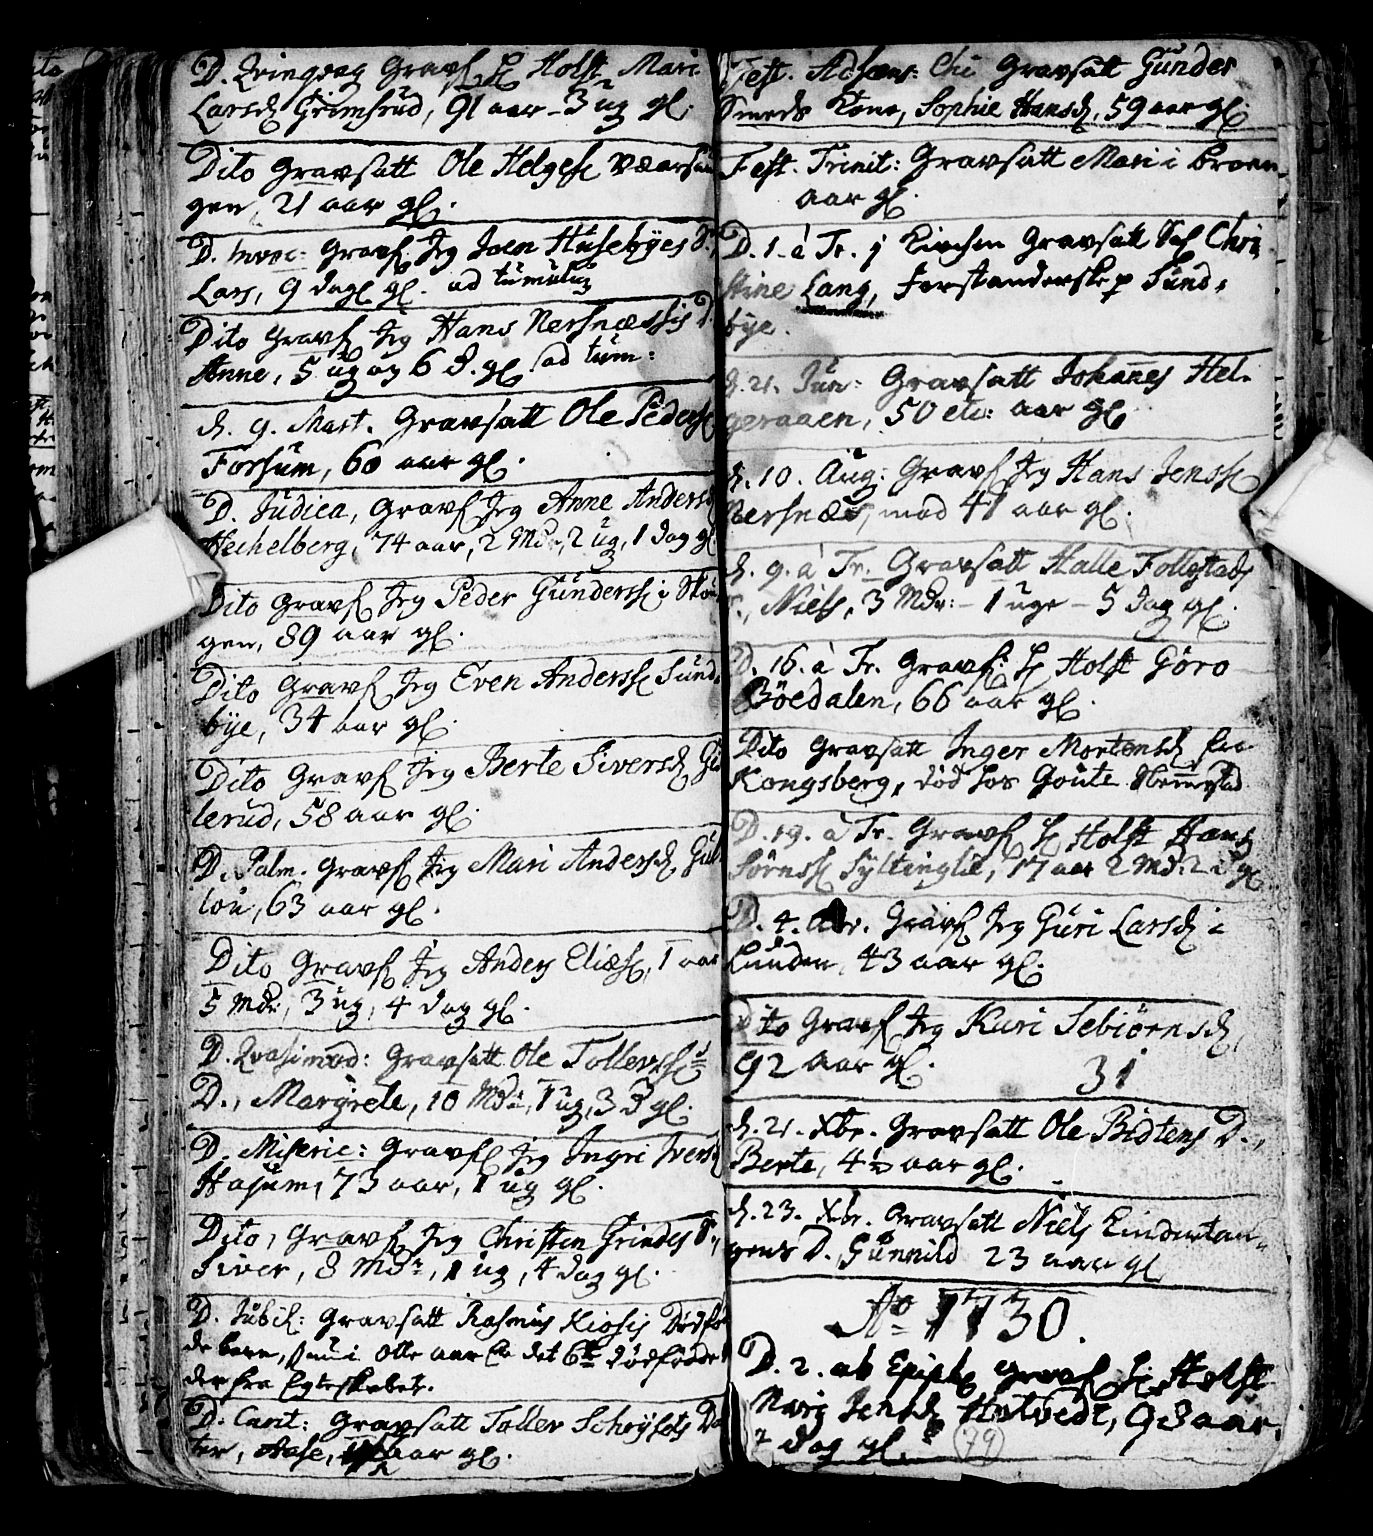 D. Qvinqvag Gravs. H Holst Mari
Larsd. Grimsrud, 91 aar - 3 ug gl.
Dito Gravsatt Ole Helges.
gen, 21 aar gl.
D. Invoc: Gravs. Jeg Joen Husebyes S.
Lars, 9 dage gl. ad tumulum
Dito Gravs. Jeg Hans Nersnæssis D.
Anne, 5 ug og 6 D. gl. ad tum:
d. 9. Mart. Gravsatt Ole Peders.
Forsum, 60 aar gl.
D. Judica, Gravs. Jeg Anne Andersd
Hechelberg, 74 aar, 2 Mdr, 2 ug, 1 dag gl
Dito Gravs. Jeg Peder Gunderss. i Skou
gen, 89 aar gl.
Dito Gravs. Jeg Even Anderss. Sund-
bye, 34 aar gl.
Dito Gravs. Jeg Berte Siversd. Gu
lerud, 58 aar gl.
D. Palm. Gravs. Jeg Mari Andersd. Gul
lou, 63 aar gl.
Dito Gravs. Jeg Anders Elies. 1 aar
5 Mdr, 3 ug, 4 dag gl.
D. Qvasimod: Gravsatt Ole Tollerss.
D., Margrete, 10 Mdr, 1 ug, 3 D gl.
D. Miseric: Gravs. Jeg Ingri Iversd
Hasum, 73 aar, 1 ug gl.
Dito, Gravs. Jeg Christen Grindes S.,
Siver, 8 Mdr, 1 ug, 4 dag gl.
D. Jubil: Gravsatt Rasmus Kiosis Dødfø
de barn, som i Otte aar er det 6te dødfødde
der fra Egteskabet.
D. Cantt: Gravsatt Toller Schryfets Da
ter, Aase, aar gl.
Fest. Adscens: Chi Gravsatt Gunder
Smeds Kone, Sophie Hansd, 59 aar gl.
Fest. Trinit: Gravsatt Mari i Broen
aar gl.
D. 1. à Tr. j Kirchen Gravsatt Sal Chri
stine Lang, Forstanderske p Sund-
bye.
d. 21. Jun: Gravsatt Johanes Hel-
geraaen, 50 etc: aar gl
d. 10. Aug: Gravs. Jeg Hans Jenss.
Nersnæs, mod 41 aar gl.
d. 9. à Tr. Gravsatt Halle Follestads
S., Niels, 3 Mdr: - 1 uge - 5 dag gl.
D. 16. à Tr. Gravs: H Holst Göro
Böedalen, 66 aar gl.
Dito Gravsatt Inger Mortensd fra
Kongsberg, død hos Goute
D. 19. à Tr. Gravs. H Holst Hans
Sörnss. Syltinglie, 17 aar 2 Md: 2 D gl
D. 4. Adv. Gravs. Jeg Guri Larsd i
Lunden, 43 aar gl.
Dito Gravs. Jeg Kari Sebiörnsd.
92 aar gl.
31
d. 21. Xbr. Gravsatt Ole Bidtens D.,
Berte, 4½ aar gl.
d. 23. Xbr. Gravsatt Niels Eindertan-
gens D. Gunnild 23 aar gl
Ao 1730.
D. 2. ab Epiph Gravs. H. Holst
Mari Jensd Hotvedt, 98 aar.
7 dag gl.
(79)